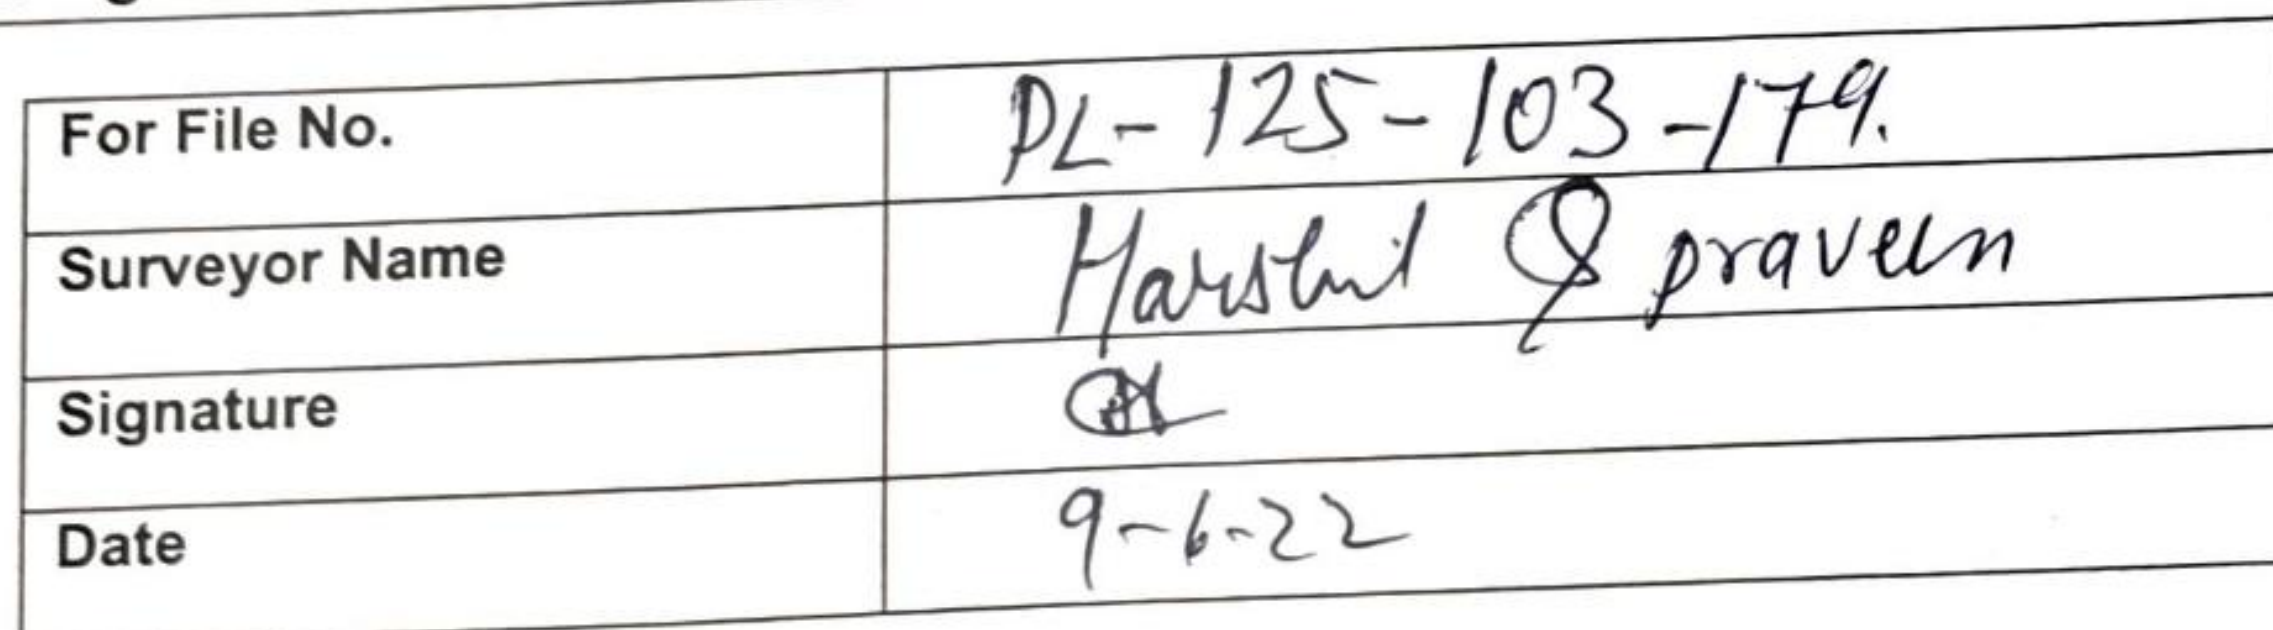 For File No. PL-125-103-179.
Surveyor Name Harshit & praveen
Signature
Date 9-6-22